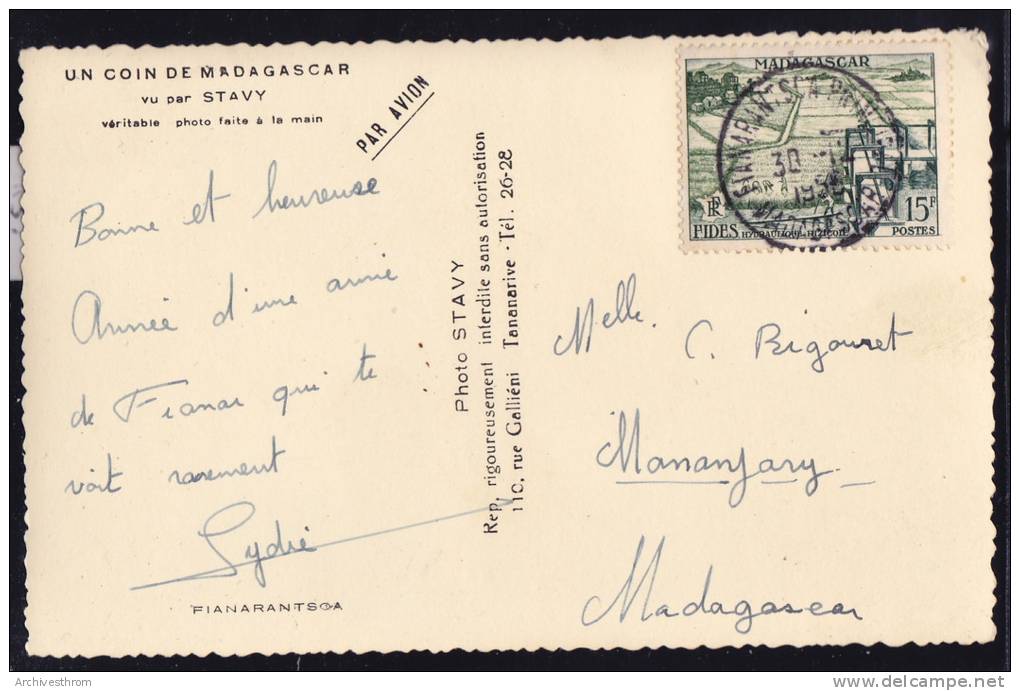 UN COIN DE MADAGASCAR
vu par STAVY
véritable photo faite à la main
PAR AVION
Bonne et heureuse
Année d'une amie
de Fianar qui te
voit rarement
Lydie
FIANARANTSOA
Photo STAVY
Rep. rigoureusement interdite sans autorisation
110, rue Galliéni Tananarive - Tél. 26-28
MADAGASCAR
RF
15F
FIDES
HYDRAULIQUE RIZICOLE
POSTES
FIANARANTSOA
30
MADAGASCAR
Melle. C. Rigouret
Mananjary
Madagascar
Archivesthrom
http://www.delcampe.net